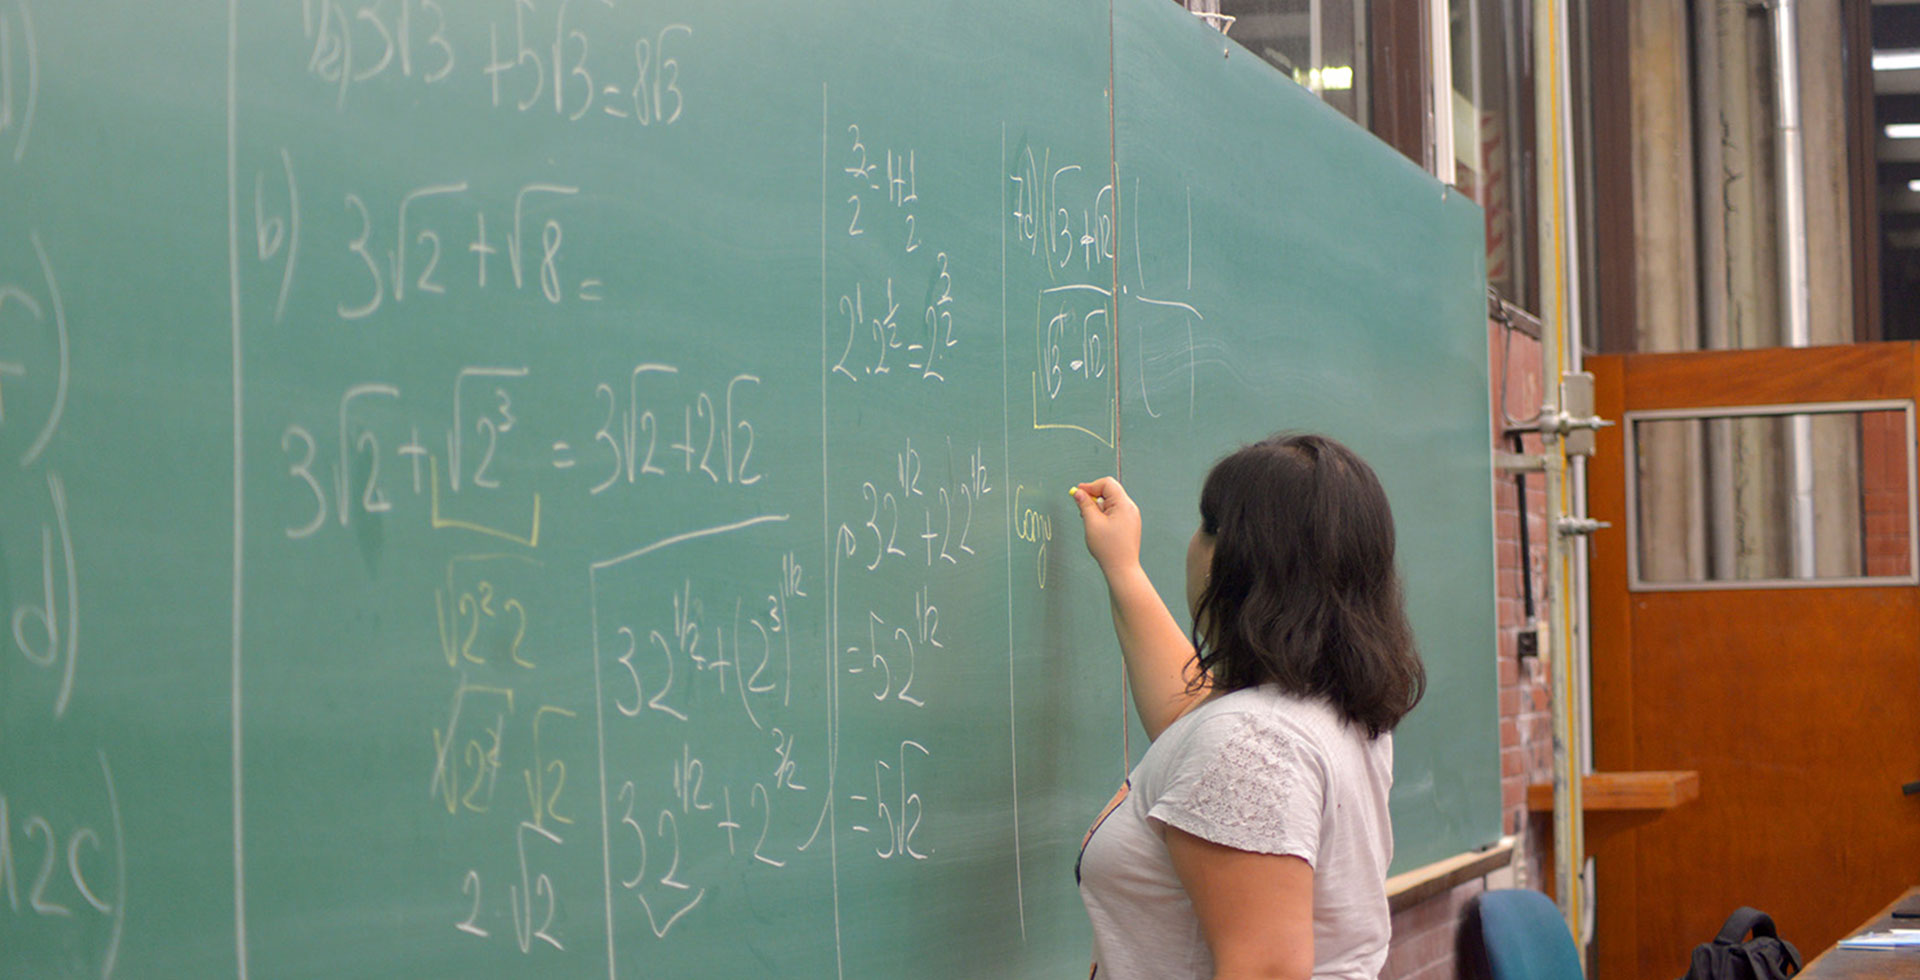 12)3√3 + 5√3 = 8√3
b) 3√2 + √8 =
3√2 + √2³ = 3√2 + 2√2
√2² 2
√2² √2
2·√2
32^1/2 + (2³)^1/2
32^1/2 + 2^3/2
3/2 = 1+1/2
2¹·2^1/2 = 2^3/2
32^1/2 + 22^1/2
= 52^1/2
= 5√2
7d) (√3 + √2) / (√3 - √2) · ( ) / ( )
Conj
d)
12c)